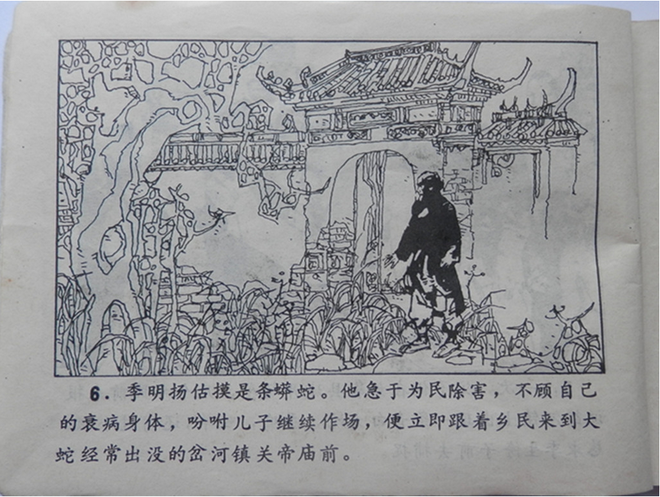 6. 季明扬估摸是条蟒蛇。他急于为民除害，不顾自己
的衰病身体，吩咐儿子继续作场，便立即跟着乡民来到大
蛇经常出没的岔河镇关帝庙前。